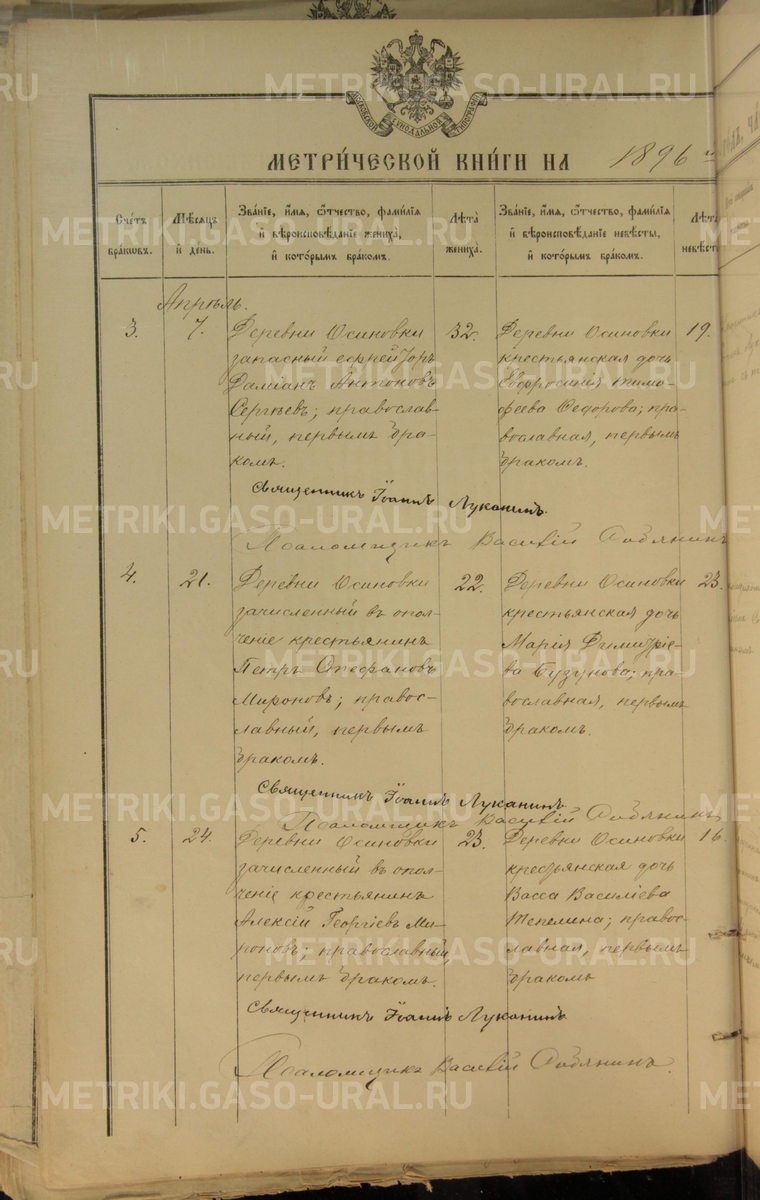 МЕТРИ́ЧЕСКОЙ КНИ́ГИ НА 1896
Сче́тъ браковъ.
Мѣ́сяцъ и҆ день.
Зва́нїе, и҆́мѧ, Ѻ҆́тчество, фами́лїѧ и҆ вѣроисповѣ́данїе жениха̀, и҆ кото́рымъ бра́комъ.
Лѣ́та жениха̀.
Зва́нїе, и҆́мѧ, Ѻ҆́тчество, фами́лїѧ и҆ вѣроисповѣ́данїе невѣ́сты, и҆ кото́рымъ бра́комъ.
Лѣ́та невѣ́сты
Апрѣль.
3.
7.
Деревни Осиновки
запасный ефрейторъ
Даміанъ Антоновъ
Сергѣевъ; православ-
ный, первымъ бра-
комъ.
32.
Деревни Осиновки
крестьянская дочь
Евфросинія Тимо-
феева Федорова; пра-
вославная, первымъ
бракомъ.
19.
Священникъ Іоаннъ Луканинъ.
Псаломщикъ Василій
4.
21.
Деревни Осиновки
зачисленный въ опол-
ченіе крестьянинъ
Петръ Стефановъ
Мироновъ; правос-
лавный, первымъ
бракомъ.
22.
Деревни Осиновки
крестьянская дочь
Марія Димитріе-
ва Бузунова; пра-
вославная, первымъ
бракомъ.
23.
Священникъ Іоаннъ Луканинъ
Псаломщикъ Василій
5.
24.
Деревни Осиновки
зачисленный въ опол-
ченіе крестьянинъ
Алексій Георгіевъ Ми-
роновъ; православный,
первымъ бракомъ.
23.
Деревни Осиновки
крестьянская дочь
Васса Василіева
Шепелина; правос-
лавная, первымъ
бракомъ
16
Священникъ Іоаннъ Луканинъ
Псаломщикъ Василій
METRIKI.GASO-URAL.RU